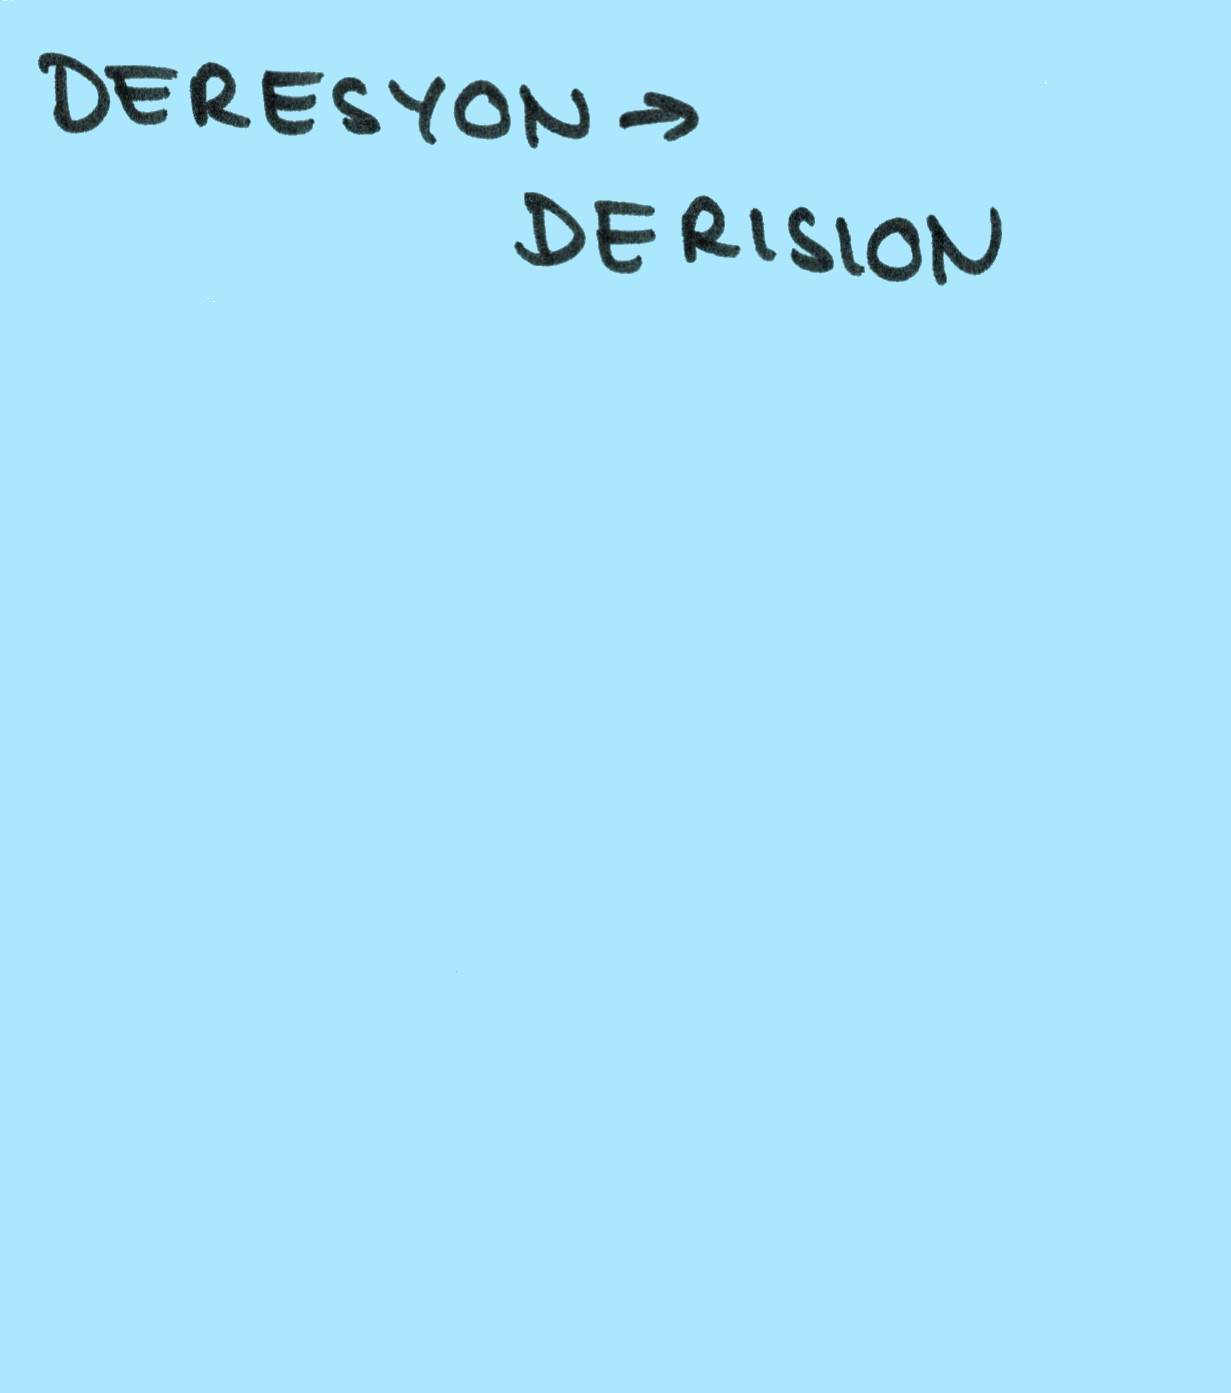 DERESYON →
DERISION